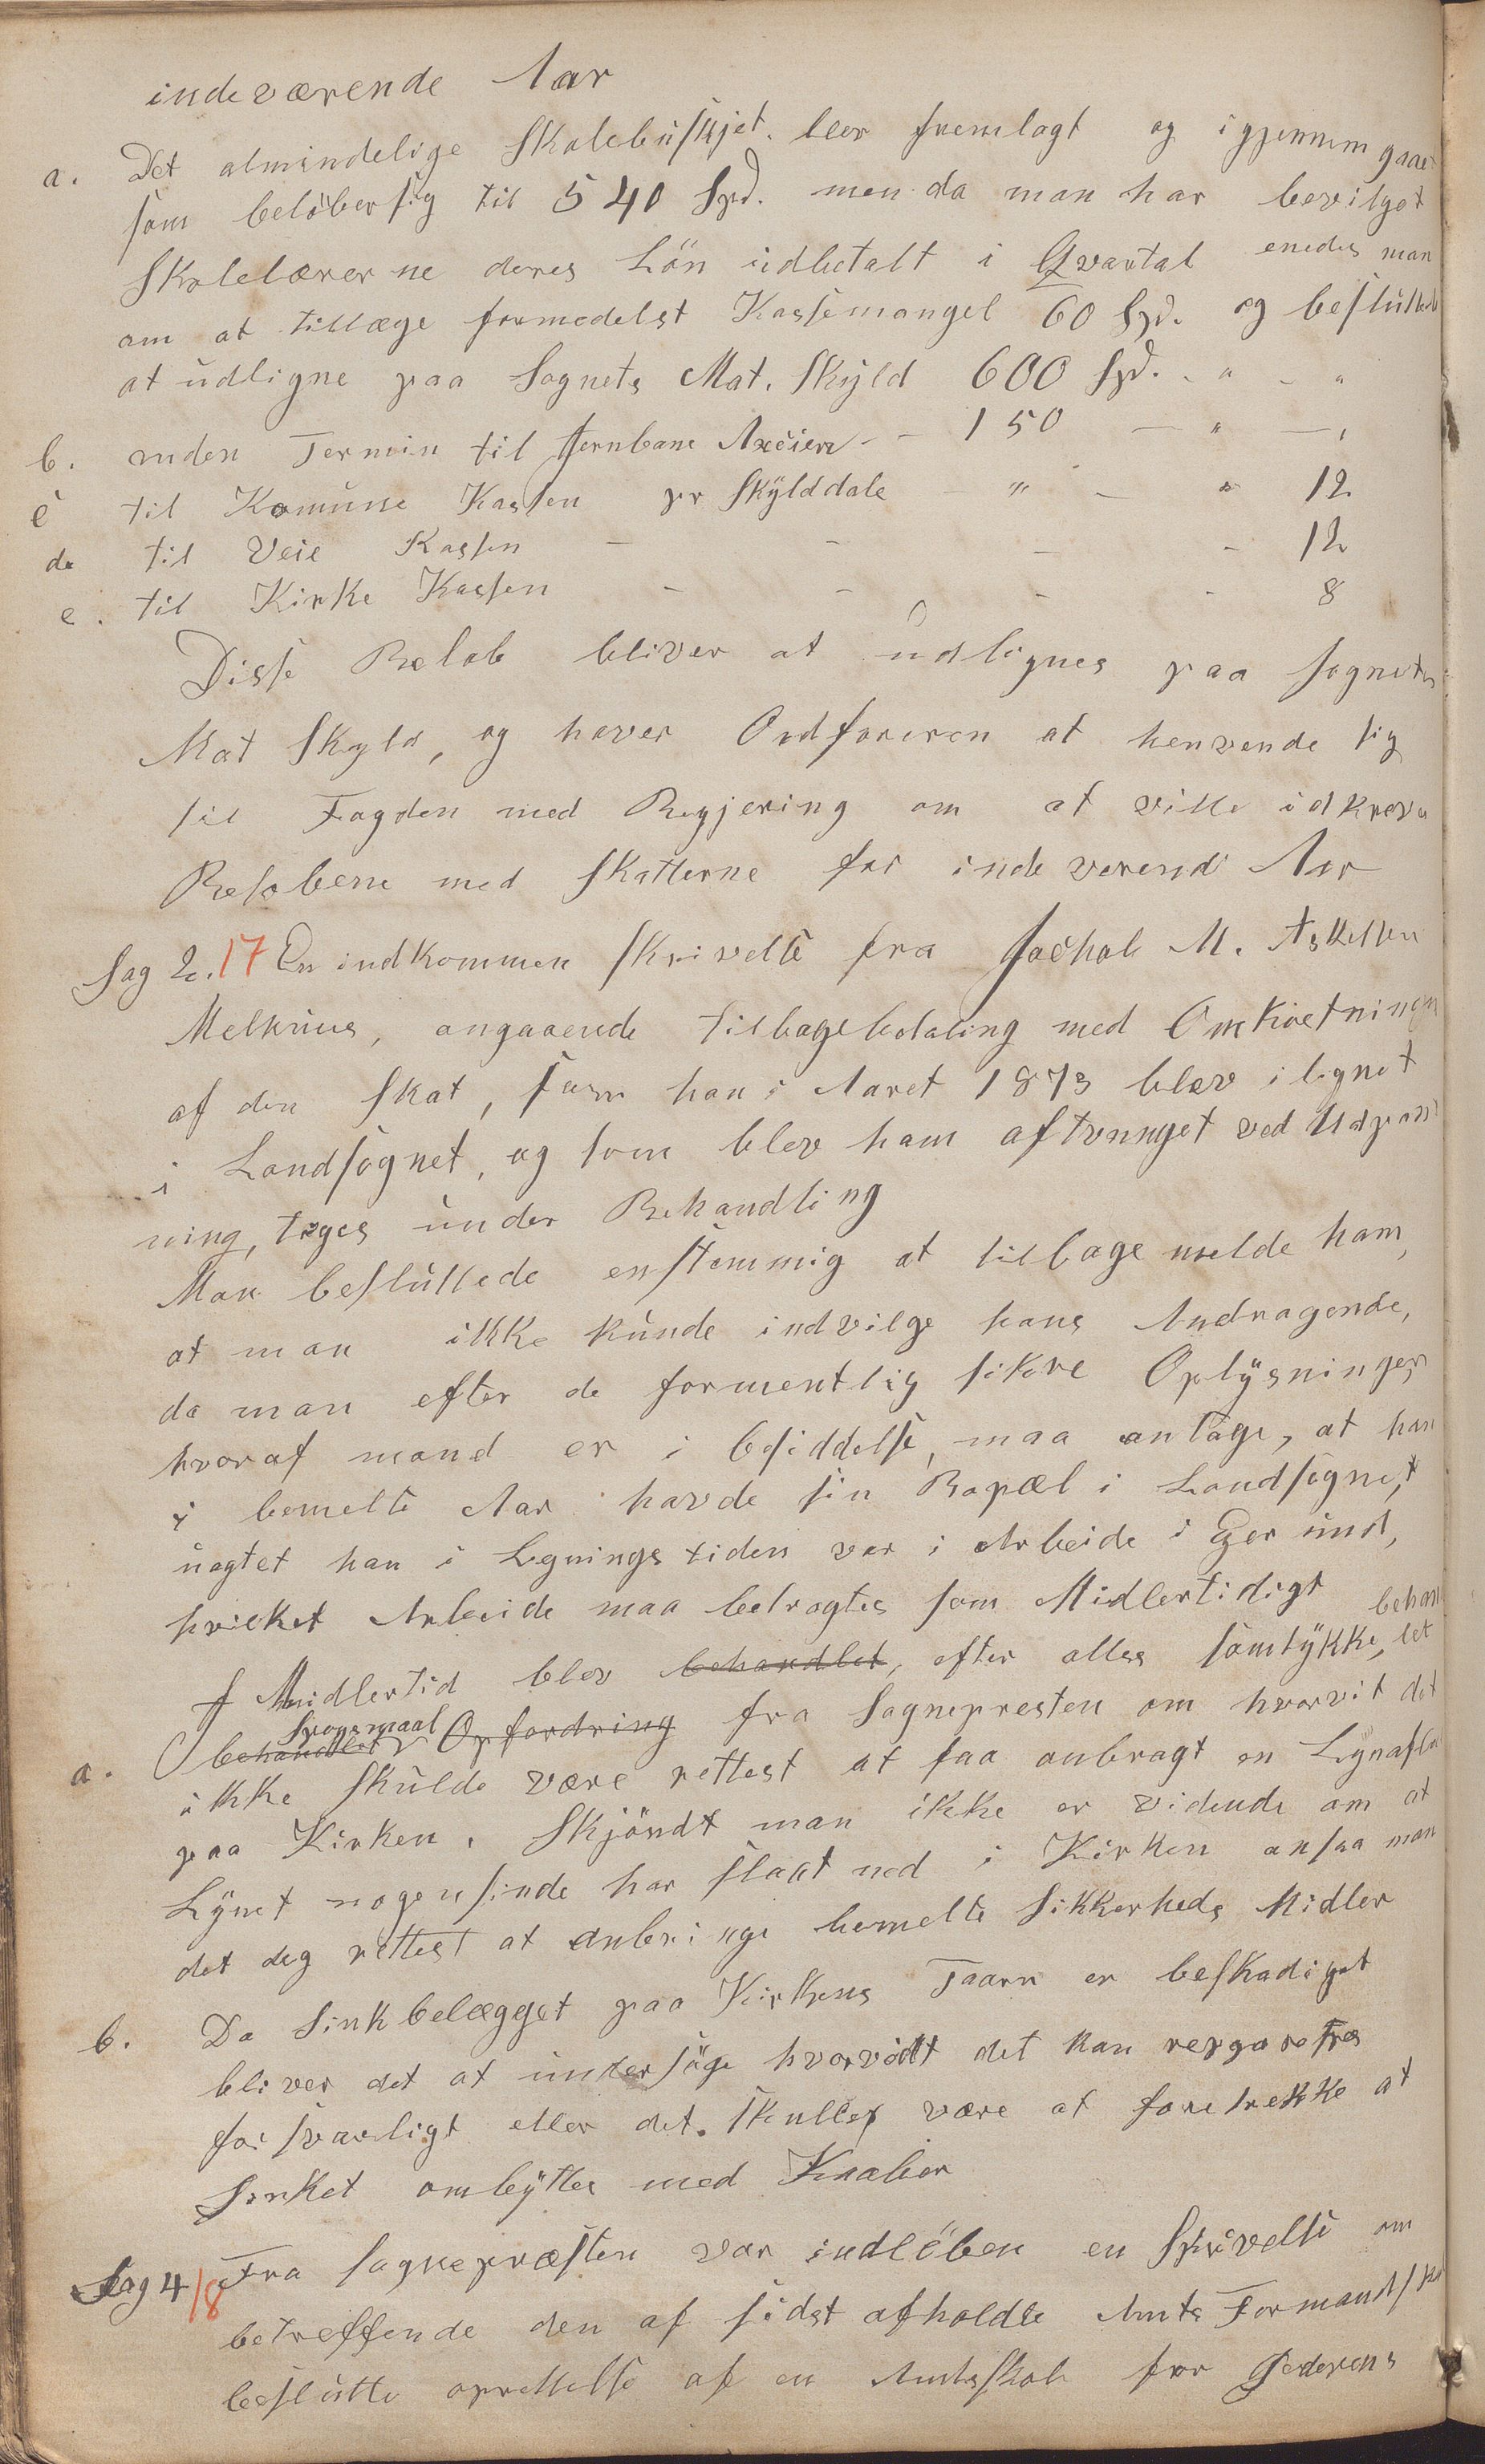 indeværende Aar
a. Det almindelige Skolebüskjet. blev fremlagt og igjennemgaaet
som beløbersig til 540 Spd. men da man har bevilget
Skolelærerne deres Lön üdbetalt i Qvartal enedes man
om at tillæge formedelst Kassemangel 60 Spd. og beslüttede
at üdligne paa Sognets Mat. Skÿld 600 Spd. - " - "
b. anden Termin til Jernbane Axcien - - 150 - " - "
c til Komüne Kassen pr Skÿlddale - " - " 12
d. til Veie Kassen - - - - 12
e. til Kirke Kassen - - - - 8
Disse Beløb bliver at üdlignes paa Sognets
Mat Skyld, og haver Ordføreren at henvende sig
til Fogden med Begjering om at ville idkreve
Beløbene med Skatterne for indeverende Aar
Sag 2. 17 En indkommen Skrivelse fra Jachob M. Askelsen
Melhuus, angaaende tilbagebetaling med Omkostningen
af den Skat, som han i Aaret 1873 blev ilignet
i Landsognet, og som blev ham aftvunget ved Udpant
ning, toges ünder Behandling
Man beslüttede enstemmig at tilbagemelde ham,
at man ikke künde indvilge hans Andragende,
da man efter de formentlig sikre Oplÿsninger
hvoraf mand er i besiddelse, maa antage, at han
i bemelte Aar havde sin Bopæl i Landsognet,
üagtet han i Legningstiden var i Arbeide i Egersünd,
hvilket Arbeide maa betragtes som Midlertidigt
I Midlertid blev behandlet, efter alles samtÿkke, behand
let
a. behandlet Sporsmaal Opfordring fra Sognepresten om hvorvit det
ikke skülde være rettest at faa anbragt en Lÿnafle
paa Kirken. Skjöndt man ikke er vidende om at
Lÿnet nogensinde har slaat ned i Kirken ansaa man
det dog rettest at anbringe bemelte Sikkerheds Midler
b. Da Sinkbelægget paa Kirkens Taarn er beskadiget
bliver det at ündersöge hvorvidt det kan repareres
forsvarligt eller det. skulley være at foretrekke at
Sinket ombÿttes med Kaaber
Sag 4/8 Fra Sognepræsten var indlöben en Skrivelse om
betreffende den af sidst afholdte Amts Formandska
beslütte oprettelse af en Amtsskole for Jederens